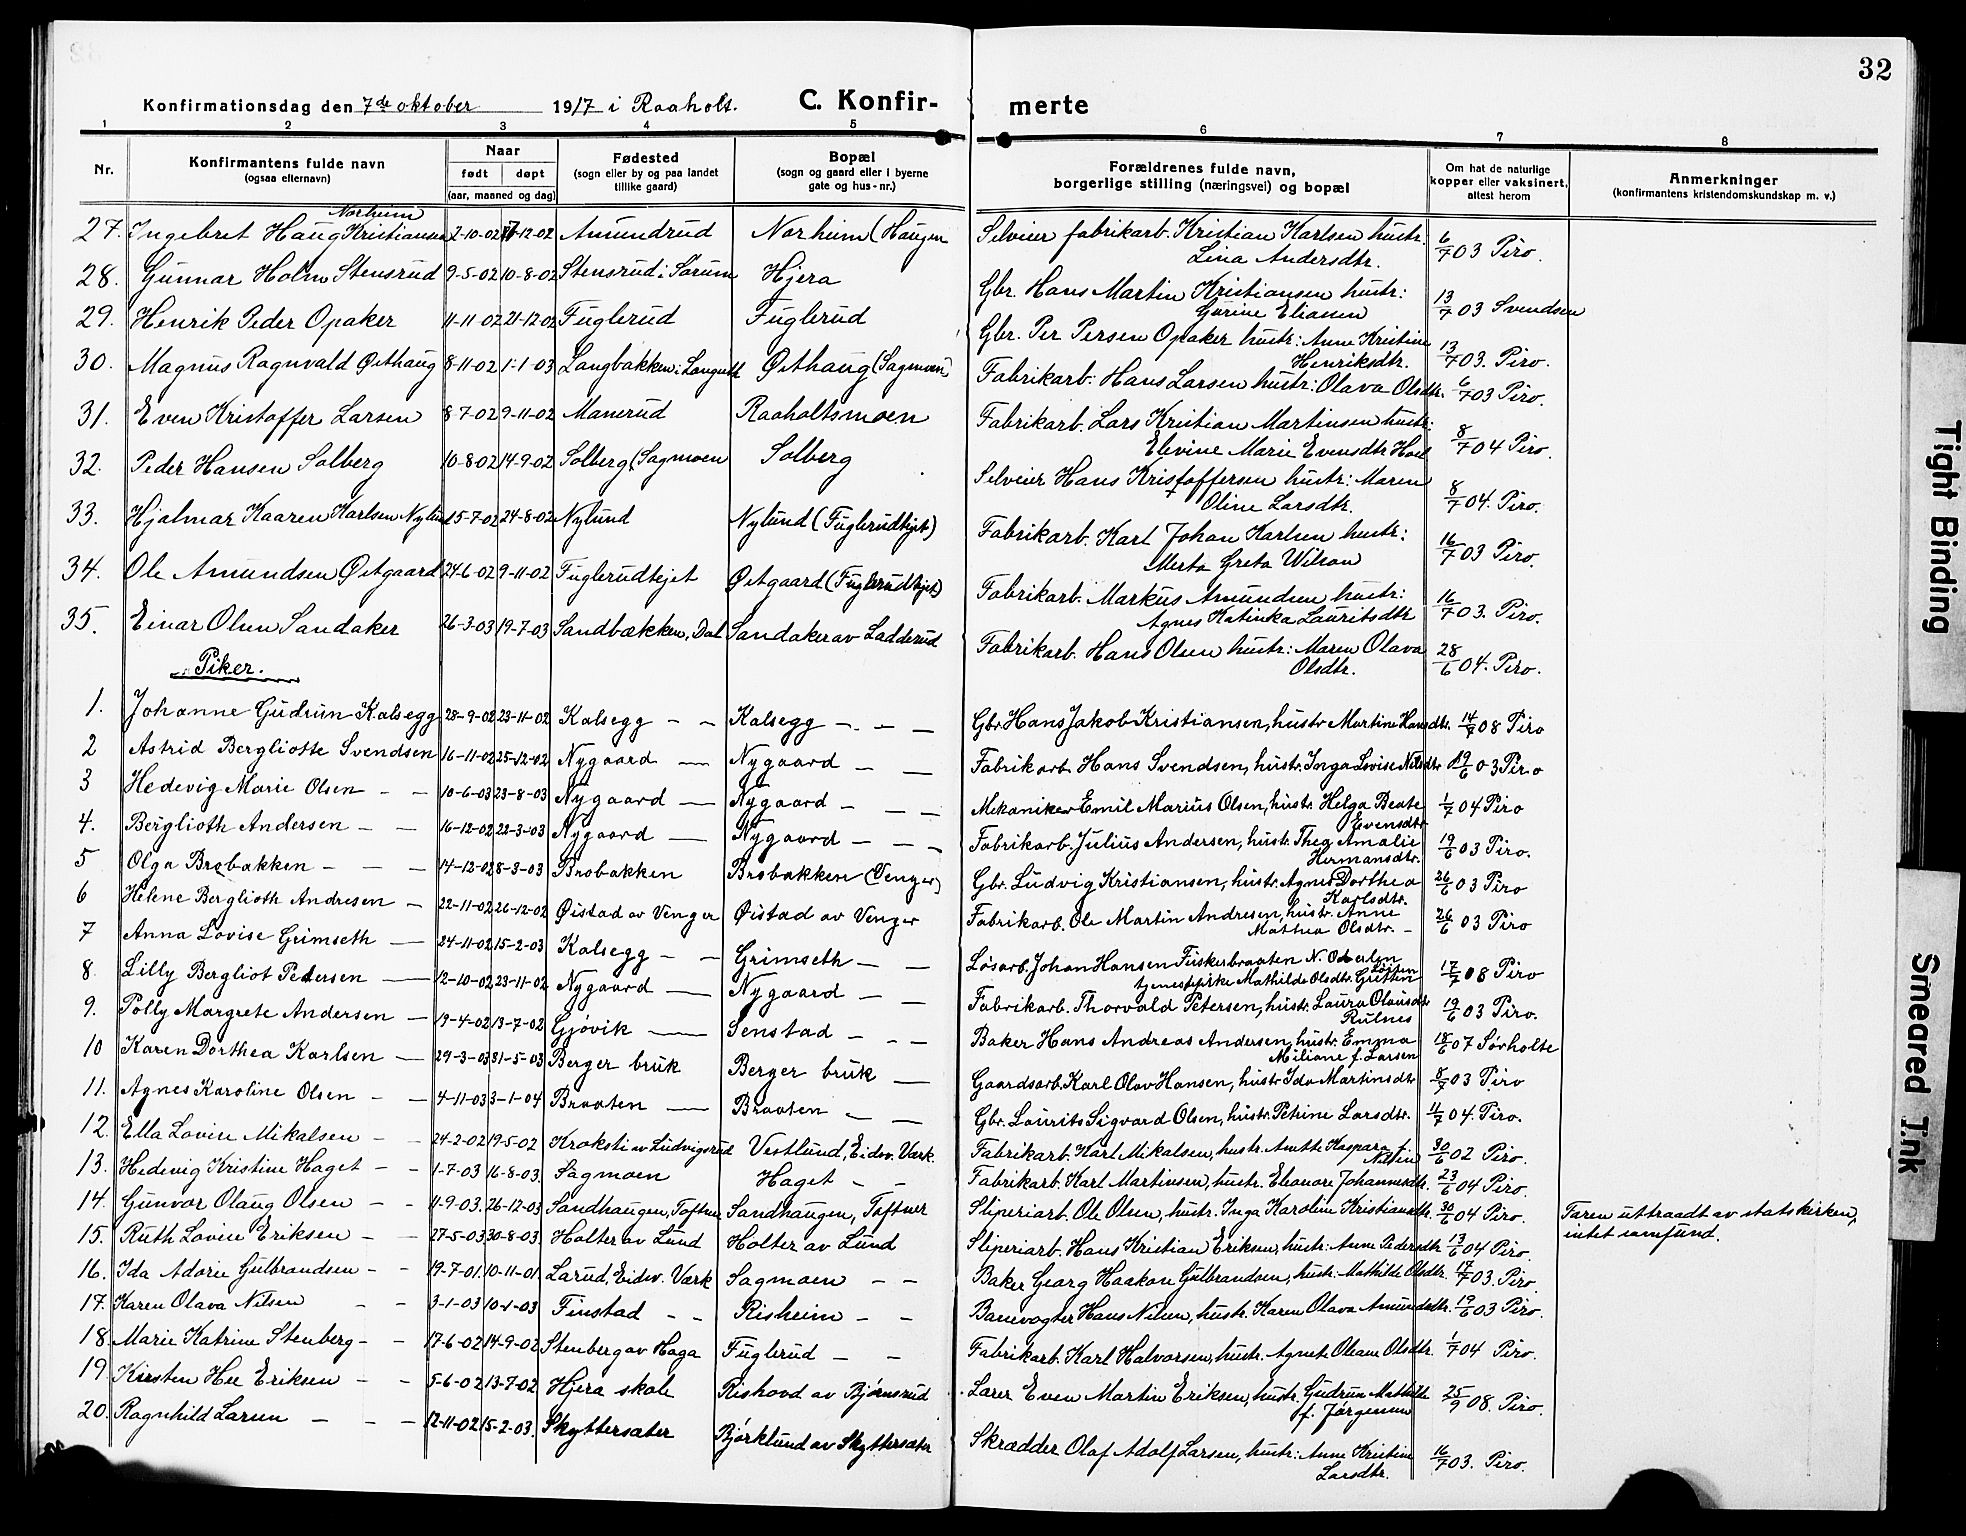 32
Konfirmationsdag den 7de oktober 1917 i Raaholt. C. Konfir- merte
1 2 3 4 5 6 7 8
Nr. Konfirmantens fulde navn (ogsaa efternavn) Naar født døpt (aar, maaned og dag) Fødested (sogn eller by og paa landet tillike gaard) Bopæl (sogn og gaard eller i byerne gate og hus-nr.) Forældrenes fulde navn, borgerlige stilling (næringsvei) og bopæl Om hat de naturlige kopper eller vaksinert, attest herom Anmerkninger (konfirmantens kristendomskundskap m. v.)
27. Ingebret Haug Kristiansen Norheim 2-10-02 7-12-02 Amundrud Norheim (Haugen Selveier fabrikarb. Kristian Karlsen hustr. Lina Andersdtr. 6/7 03 Piro.
28. Gunnar Holm Stensrud 9-5-02 10-8-02 Stensrud i Sørum Hjera Gbr. Hans Martin Kristiansen hustr: Gurine Eliassen 13/7 03 Svendsen
29. Henrik Peder Opaker 11-11-02 21-12-02 Fuglerud Fuglerud Gbr. Per Persen Opaker hustr: Anne Kristine Henriksdtr. 13/7 03. Piro.
30. Magnus Ragnvald Østhaug 8-11-02 1-1-03 Langbakken i Langseth Østhaug (Sagmoen) Fabrikarb. Hans Larsen hustr: Olava Olsdtr. 6/7 03 Piro.
31. Even Kristoffer Larsen 8-7-02 9-11-02 Manerud Raaholtsmoen Fabrikarb. Lars Kristian Martinsen hustr: Elevine Marie Evensdtr Hoel 8/7 04 Piro.
32. Peder Hansen Solberg 10-8-02 14-9-02 Solberg (Sagmoen Solberg Selveier Hans Kristoffersen hustr: Maren Oline Larsdtr. 8/7 04. Piro.
33. Hjalmar Kaaren Karlsen Nylund 15-7-02 24-8-02 Nylund Nylund (Fuglerudtjet) Fabrikarb. Karl Johan Karlsen hustr: Merta Greta Wilson 16/7 03 Piro.
34. Ole Amundsen Østgaard 24-6-02 9-11-02 Fuglerudtjet Østgaard (Fuglerudtjet) Fabrikarb. Markus Amundsen hustr: Agnes Katinka Lauritsdtr 16/7 03. Piro.
35. Einar Olsen Sandaker 26-3-03 19-7-03 Sandbækken, Dal Sandaker av Ladderud Fabrikarb. Hans Olsen hustr: Maren Olava Olsdtr. 28/6 04. Piro.
Piker.
1. Johanne Gudrun Kalsegg 28-9-02 23-11-02 Kalsegg Kalsegg Gbr. Hans Jakob Kristiansen, hustr Martine Hansdtr. 14/7 08 Piro
2 Astrid Bergliotte Svendsen 16-11-02 25-12-02 Nygaard Nygaard Fabrikarb. Hans Svendsen, hustr. Inga Lovise Nilsdtr 19/6 03 Piro
3 Hedevig Marie Olsen 10-6-03 23-8-03 Nygaard Nygaard Mekaniker Emil Marius Olsen, hustr. Helga Beate Evensdtr 1/7 04 Piro
4. Berglioth Andersen 16-12-02 22-3-03 Nygaard Nygaard Fabrikarb. Julius Andersen, hustr. Thea Amalie Hermansdtr. 19/6 03 Piro.
5 Olga Brobakken 14-12-02 8-3-03 Brobakken Brobakken (Venger) Gbr. Ludvig Kristiansen, hustr. Agnes Dorthea Karlsdtr. 26/6 03 Piro
6 Helene Berglioth Andresen 22-11-02 26-12-02 Øistad av Venger Øistad av Venger Fabrikarb. Ole Martin Andresen, hustr. Anne Mathea Olsdtr. 26/6 03 Piro
7 Anna Lovise Grimseth 24-11-02 15-2-03 Kalsegg Grimseth Løsarb. Johan Hansen Fiskerbraaten N. Odalen tjenestepike Mathilde Olsdtr. Løiten 17/7 08 Piro
8. Lilly Bergliot Pedersen 12-10-02 23-11-02 Nygaard Nygaard Fabrikarb. Thorvald Petersen, hustr. Laura Olausdtr Rulnes 19/6 03 Piro.
9. Polly Margrete Andersen 19-4-02 13-7-02 Gjøvik Senstad Baker Hans Andreas Andersen, hustr. Emma Miliane f. Larsen 18/6 07 Sørholte
10 Karen Dorthea Karlsen 29-3-03 31-5-03 Berger bruk Berger bruk Gaardsarb. Karl Olav Hansen, hustr Ida Martinsdtr 8/7 03 Piro
11. Agnes Karoline Olsen 4-11-03 3-1-04 Braaten Braaten Gbr. Laurits Sigvard Olsen, hustr. Petrine Larsdtr. 11/7 04. Piro.
12. Ella Lovise Mikalsen 24-2-02 19-5-02 Kroksti av Ludvigsrud Vestlund, Eidsv. Værk. Fabrikarb. Karl Mikalsen, hustr. Anette Kaspara f. Nilsen 30/6 02 Piro.
13. Hedevig Kristine Haget 1-7-03 16-8-03. Sagmoen Haget Fabrikarb. Karl Martinsen, hustr. Eleonore Johannesdtr. 23/6 04 Piro.
14. Gunvor Olaug Olsen 11-9-03. 26-12-03 Sandhaugen, Toftner Sandhaugen, Toftner Sliperiarb. Ole Olsen, hustr. Inga Karoline Kristiansdtr 30/6 04 Piro. Faren uttraadt av statskirken, intet samfund.
15. Ruth Lovise Eriksen 27-5-03 30-8-03. Holter av Lund Holter av Lund Sliperiarb. Hans Kristian Eriksen, hustr: Anne Pedersdtr 13/6 04 Piro.
16. Ida Adorie Gulbrandsen 19-7-01. 10-11-01. Larud, Eidsv. Værk Sagmoen Baker Georg Haakon Gulbrandsen, hustr: Mathilde Olsdtr. 17/7 03. Piro.
17. Karen Olava Nilsen 3-1-03 10-1-03 Finstad Risheim Banevogter Hans Nilsen, hustr. Karen Olava Amundsdtr. 19/6 03 Piro.
18. Marie Katrine Stenberg 17-6-02 14-9-02 Stenberg av Haga Fuglerud Fabrikarb. Karl Halvorsen, hustr. Agnete Oleane Olsdtr. 1/7 04 Piro.
19. Kirsten Hee Eriksen 5-6-02 13-7-02 Hjera skole Rishovd av Bjørnsrud Lærer Even Martin Eriksen, hustr. Gudrun Mathilde f. Jørgensen 25/9 08. Piro.
20. Ragnhild Larsen 12-11-02 15-2-03. Skyttersæter Bjørklund av Skyttersæter Skrædder Olaf Adolf Larsen, hustr: Anne Kristine Larsdtr. 16/7 03. Piro.
Tight Binding
Smeared Ink